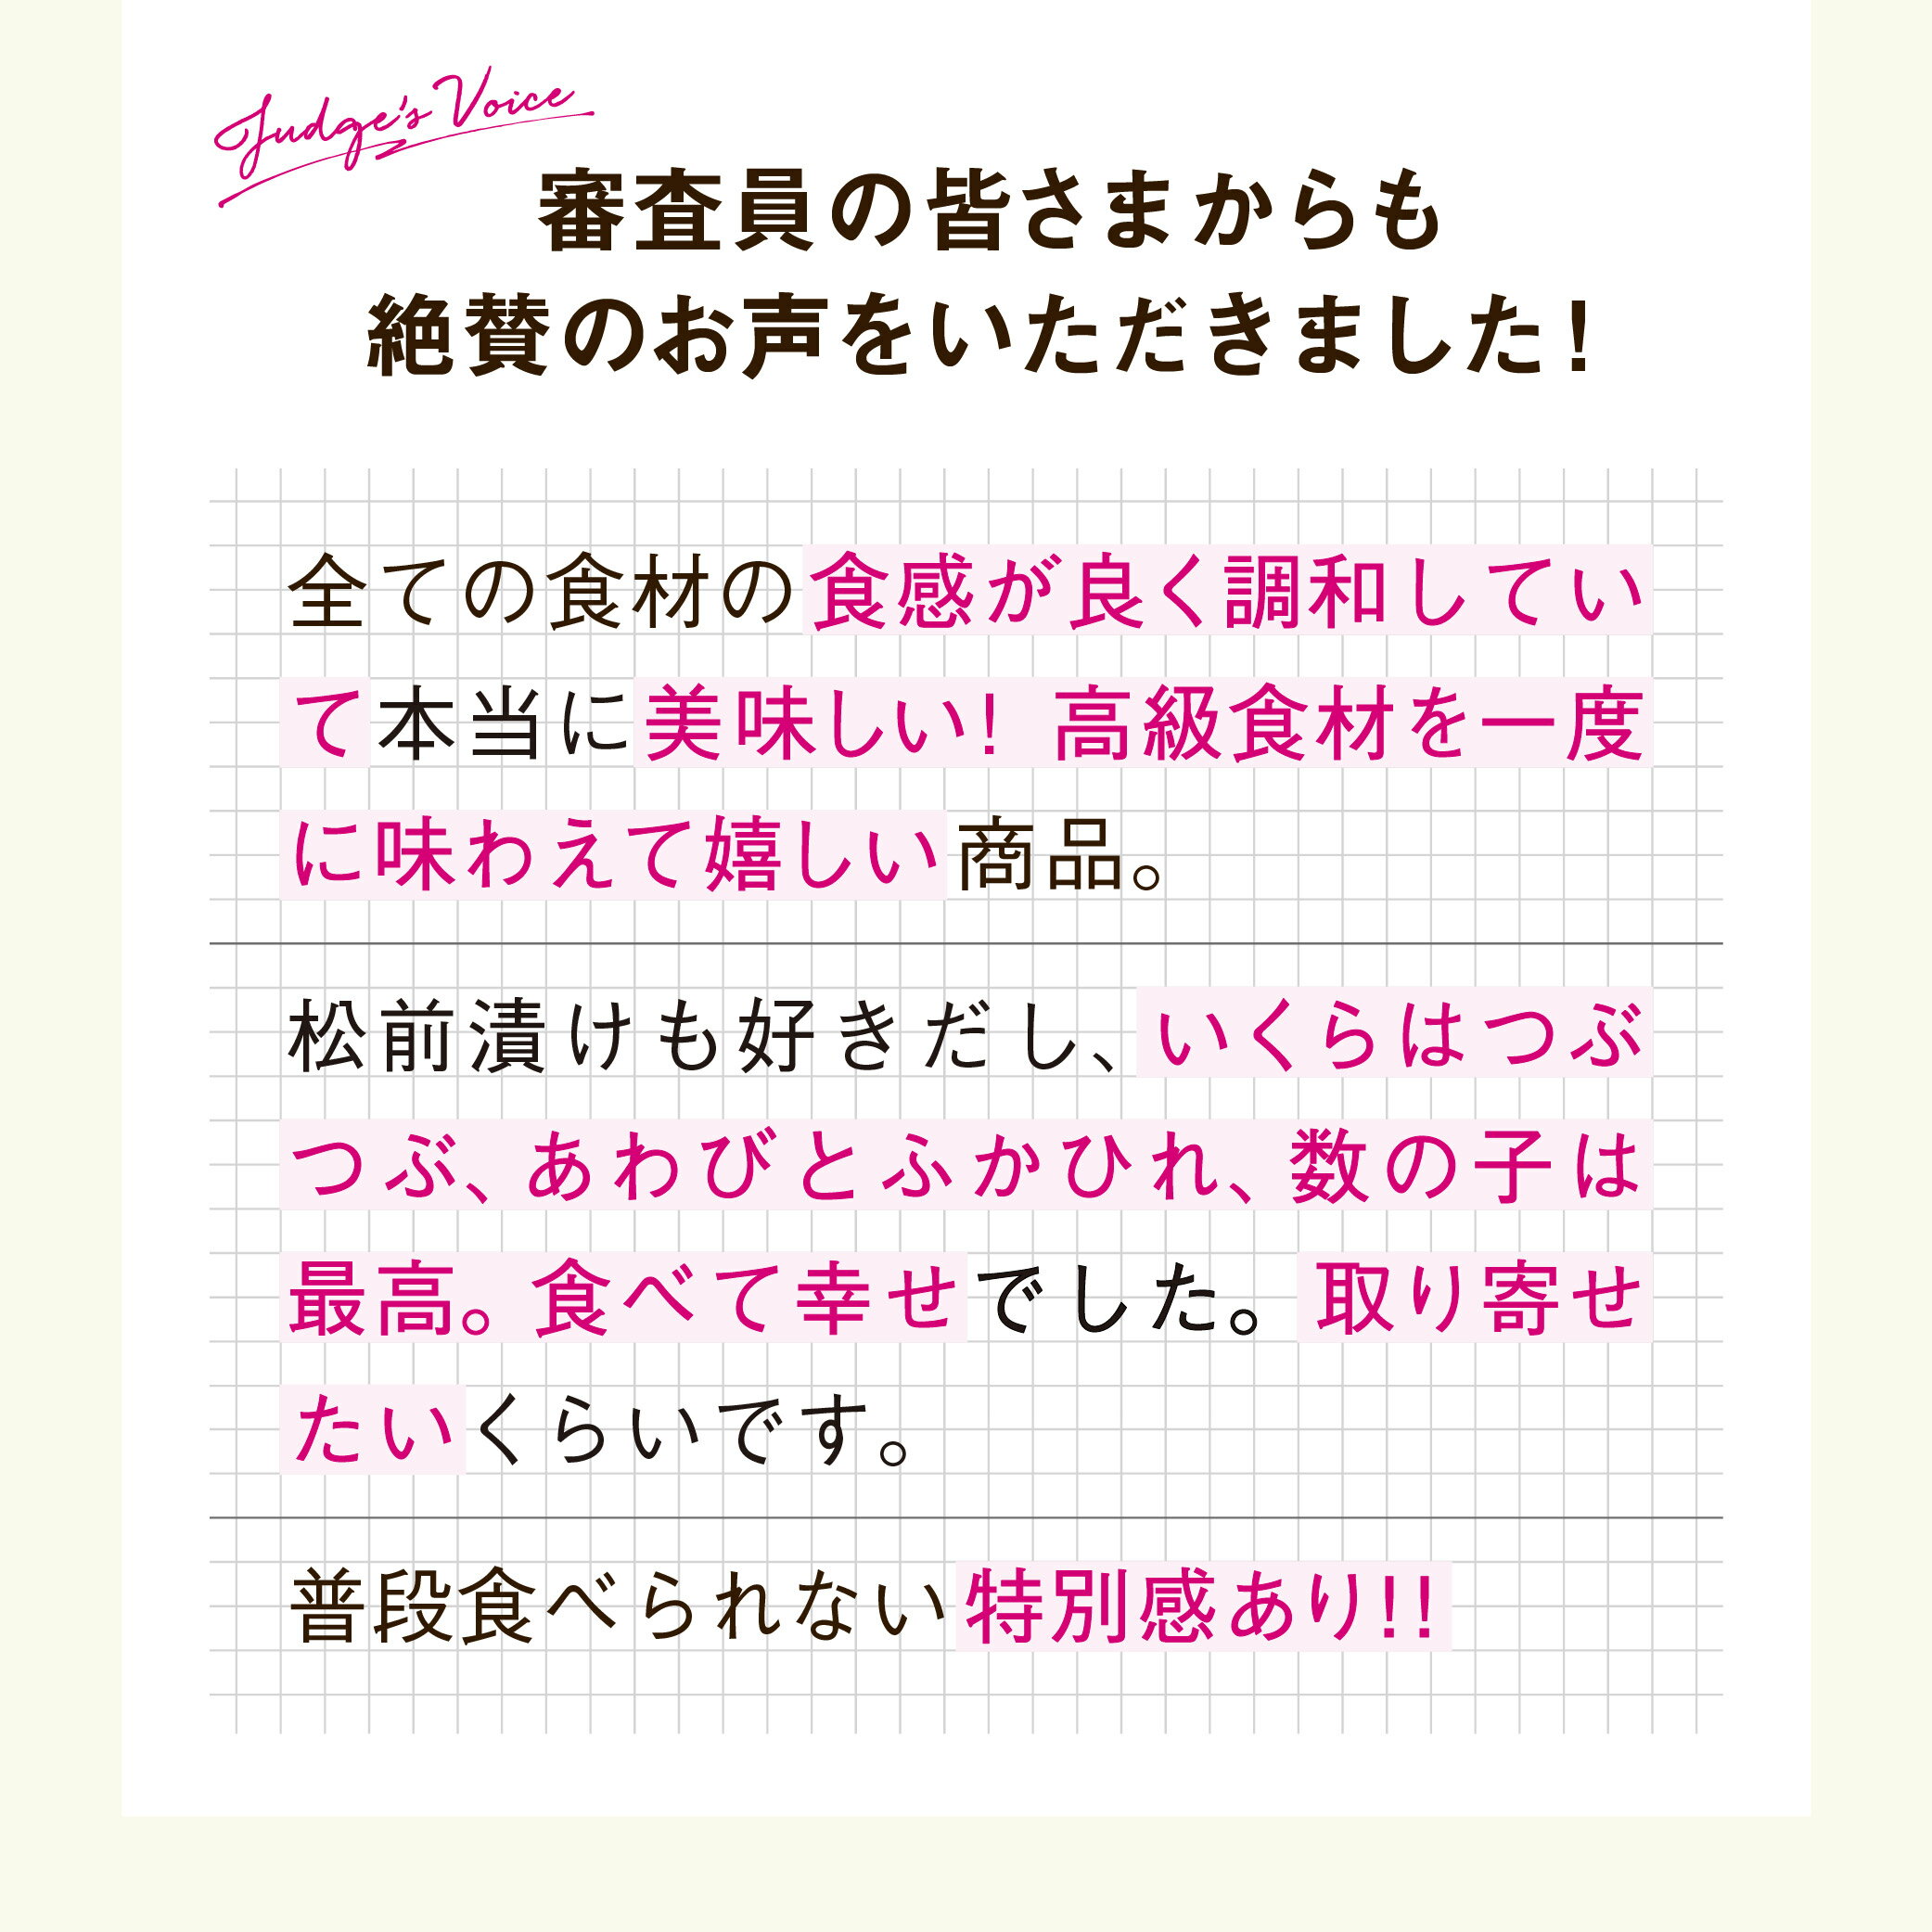 Judge's Voice
審査員の皆さまからも
絶賛のお声をいただきました!
全ての食材の食感が良く調和してい
て本当に美味しい! 高級食材を一度
に味わえて嬉しい商品。
松前漬けも好きだし、いくらはつぶ
つぶ、あわびとふかひれ、数の子は
最高。食べて幸せでした。取り寄せ
たいくらいです。
普段食べられない特別感あり!!